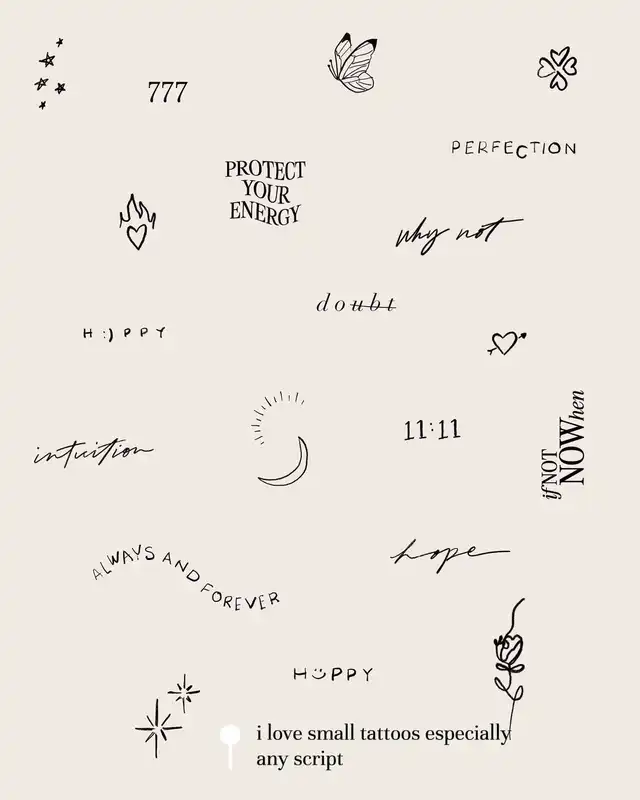 777
PERFECTION
PROTECT
YOUR
ENERGY
why not
doubt
H :) P P Y
11:11
if NOT
NOW hen
intuition
hope
ALWAYS AND FOREVER
H PPY
i love small tattoos especially
any script